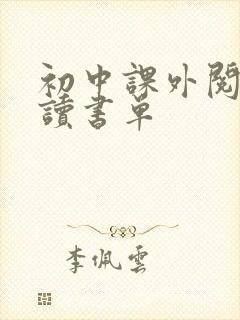 初中課外閱
讀書單
李佩雲